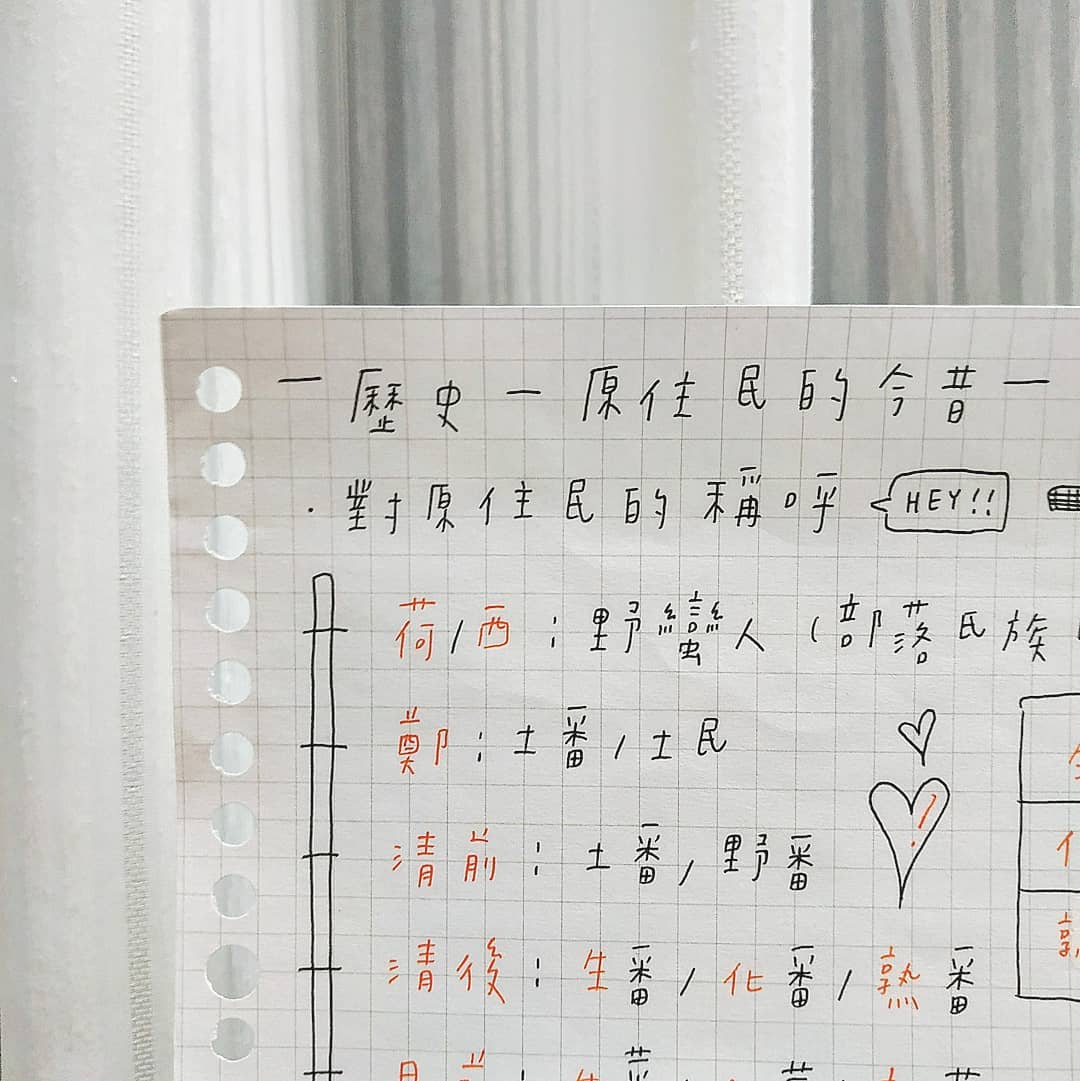 一歷史一原住民的今昔一
・對原住民的稱呼 HEY!!
荷/西：野蠻人（部落民族
鄭：土番/土民
清前：土番/野番
清後：生番/化番/熟番